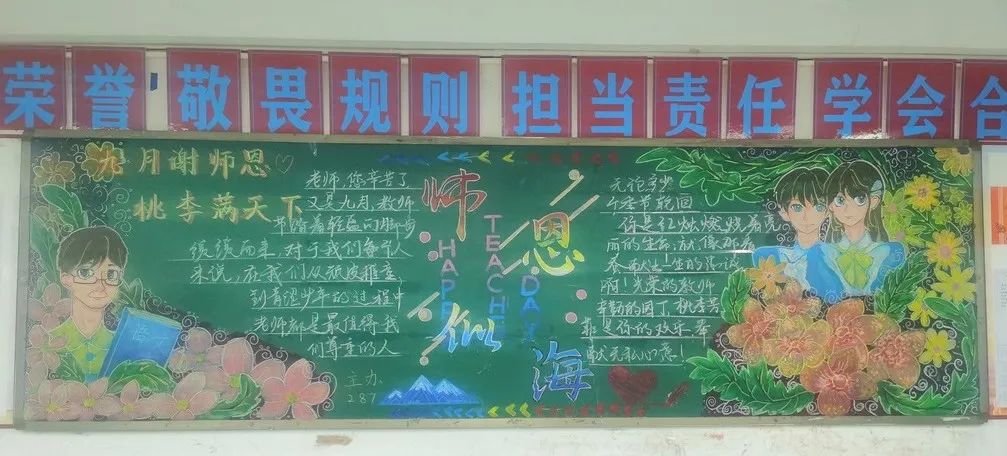 荣誉 敬畏规则 担当责任 学会合
九月谢师恩
桃李满天下
老师,您辛苦了
又是九月,教师
节踏着轻盈的脚步
缓缓而来,对于我们每个人
来说,在我们从顽皮稚童
到青涩少年的过程中
老师都是最值得我
们尊重的人
主办
287
师恩似海
HAPP
TEACHE
DAY
无论多少
个季节轮回
你是红烛燃烧着亮
丽的生命,献
啊!光荣的教师
辛勤的园丁桃李芳
菲是你的欢乐奉
献无私心意!